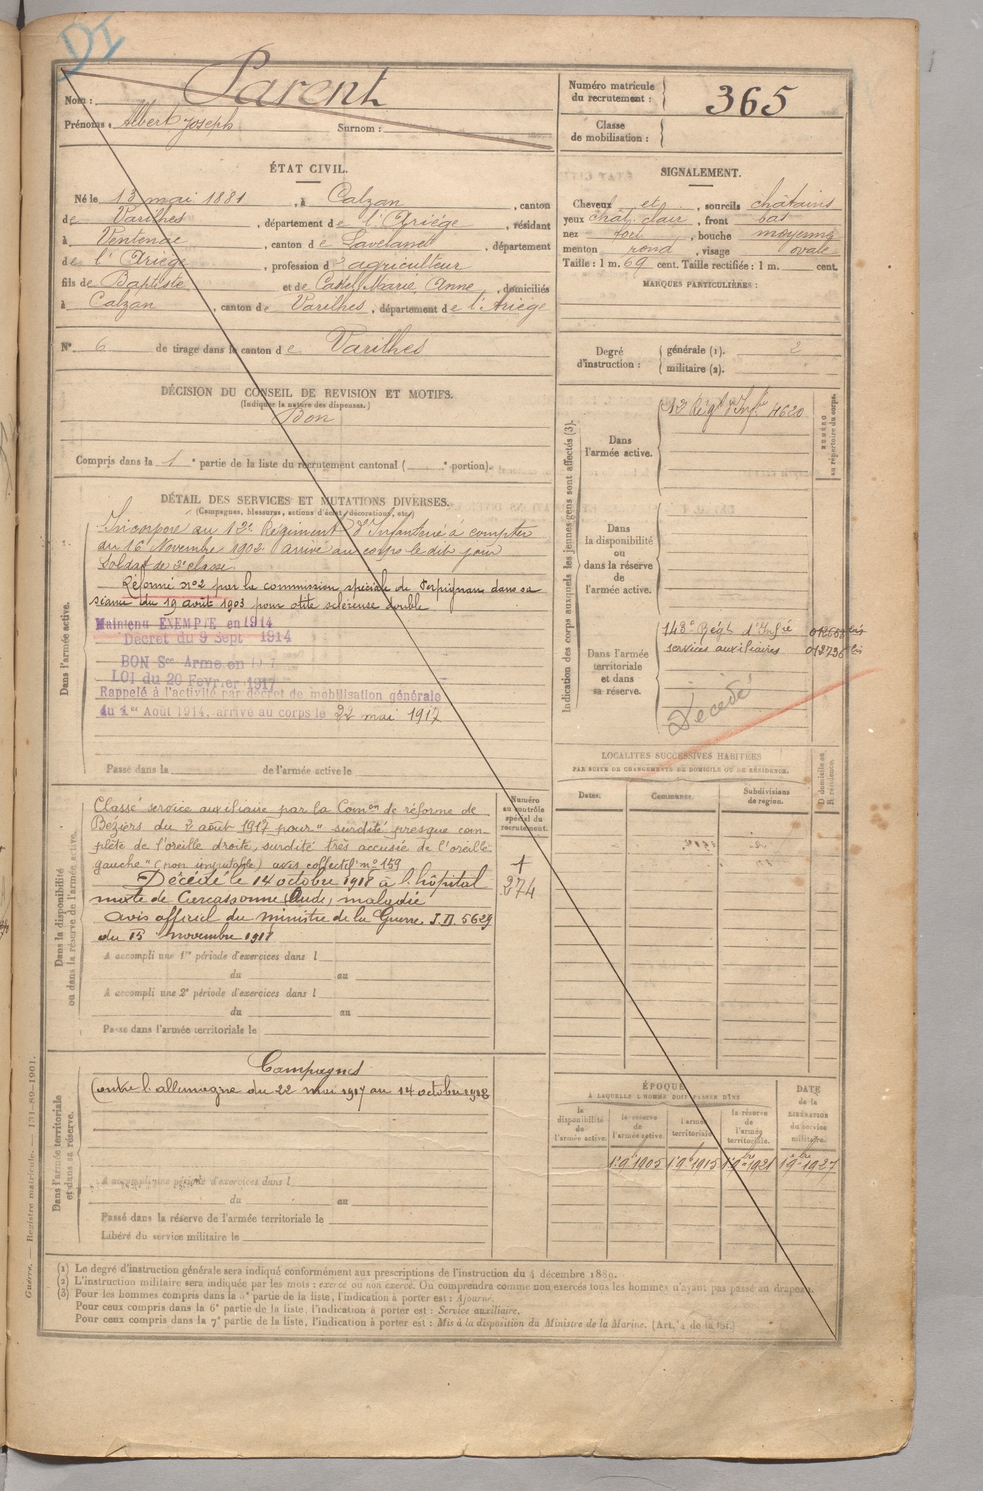 DI
Nom : Parent
Prénoms : Albert Joseph Surnom :
Numéro matricule du recrutement : 365
Classe de mobilisation :
ÉTAT CIVIL.
Né le 13 mai 1881, à Calzan, canton
de Varilhes, département de l'Ariége, résidant
à Ventenac, canton de Lavelanet, département
de l'Ariége, profession d' agriculteur
fils de Baptiste et de Marie Anne, domiciliés
à Calzan, canton de Varilhes, département de l'Ariége
N° 6 de tirage dans le canton de Varilhes
SIGNALEMENT.
Cheveux et, sourcils châtains
yeux chat. clair, front bas
nez fort, bouche moyenne
menton rond, visage ovale
Taille : 1 m. 69 cent. Taille rectifiée : 1 m. cent.
MARQUES PARTICULIÈRES :
Degré d'instruction : générale (1). 2
militaire (2).
DÉCISION DU CONSEIL DE REVISION ET MOTIFS.
(Indiquer la nature des dispenses.)
Bon
Compris dans la 1e partie de la liste du recrutement cantonal ( e portion).
DÉTAIL DES SERVICES ET MUTATIONS DIVERSES.
(Campagnes, blessures, actions d'éclat, décorations, etc.)
Dans l'armée active.
Incorporé au 12e Régiment d'Infanterie à compter
du 16 Novembre 1902 arrivé au corps le dit jour
Soldat de 2e classe
Réformé no 2 par la commission spéciale de Perpignan dans sa
séance du 19 août 1903 pour otite scléreuse double
Maintenu EXEMPTE en 1914
Décret du 9 Sept 1914
BON Sce Armé en
LOI du 20 Février 1917
Rappelé à l'activité par décret de mobilisation générale
du 1er Août 1914, arrivé au corps le 22 mai 1917
Passé dans la de l'armée active le
Indication des corps auxquels les jeunes gens sont affectés (3).
NUMÉRO au répertoire du corps.
Dans l'armée active.
12e Régt d'Infie 4620
Dans la disponibilité ou dans la réserve de l'armée active.
Dans l'armée territoriale et dans sa réserve.
143e Régt d'Infie
services auxiliaires
Décédé
LOCALITÉS SUCCESSIVES HABITÉES
PAR SUITE DE CHANGEMENTS DE DOMICILE OU DE RÉSIDENCE.
Dates. Communes. Subdivisions de région. D domicile ou R résidence.
Dans la disponibilité ou dans la réserve de l'armée active.
Numéro au contrôle spécial du recrutement.
274
Classé service auxiliaire par la Comon de réforme de
Béziers du 2 août 1917 pour "surdité presque com-
plète de l'oreille droite, surdité très accusée de l'oreille
gauche" (non imputable) avis collectif no 159
Décédé le 14 octobre 1918 à l'hôpital
mixte de Carcassonne (Aude) maladie
avis officiel du ministre de la Guerre
du 15 novembre 1918
A accompli une 1re période d'exercices dans l
du au
A accompli une 2e période d'exercices dans l
du au
Passé dans l'armée territoriale le
Dans l'armée territoriale et dans sa réserve.
Campagnes
Contre l'allemagne du 22 mai 1917 au 14 octobre 1918
A accompli une période d'exercices dans l
du au
Passé dans la réserve de l'armée territoriale le
Libéré du service militaire le
ÉPOQUE
À LAQUELLE L'HOMME DOIT PASSER DANS
la disponibilité de l'armée active.
la réserve de l'armée active.
l'armée territoriale.
la réserve de l'armée territoriale.
DATE de la LIBÉRATION du service militaire.
1er 9bre 1905 1er 9bre 1915 1er 9bre 1921 1er 9bre 1927
(1) Le degré d'instruction générale sera indiqué conformément aux prescriptions de l'instruction du 4 décembre 1889.
(2) L'instruction militaire sera indiquée par les mots : exercé ou non exercé. On comprendra comme non exercés tous les hommes n'ayant pas passé au drapeau.
(3) Pour les hommes compris dans la 5e partie de la liste, l'indication à porter est : Ajourné.
Pour ceux compris dans la 6e partie de la liste, l'indication à porter est : Service auxiliaire.
Pour ceux compris dans la 7e partie de la liste, l'indication à porter est : Mis à la disposition du Ministre de la Marine. (Art. 4 de la loi.)
Guerre. — Registre matricule. — 131-89-1901.